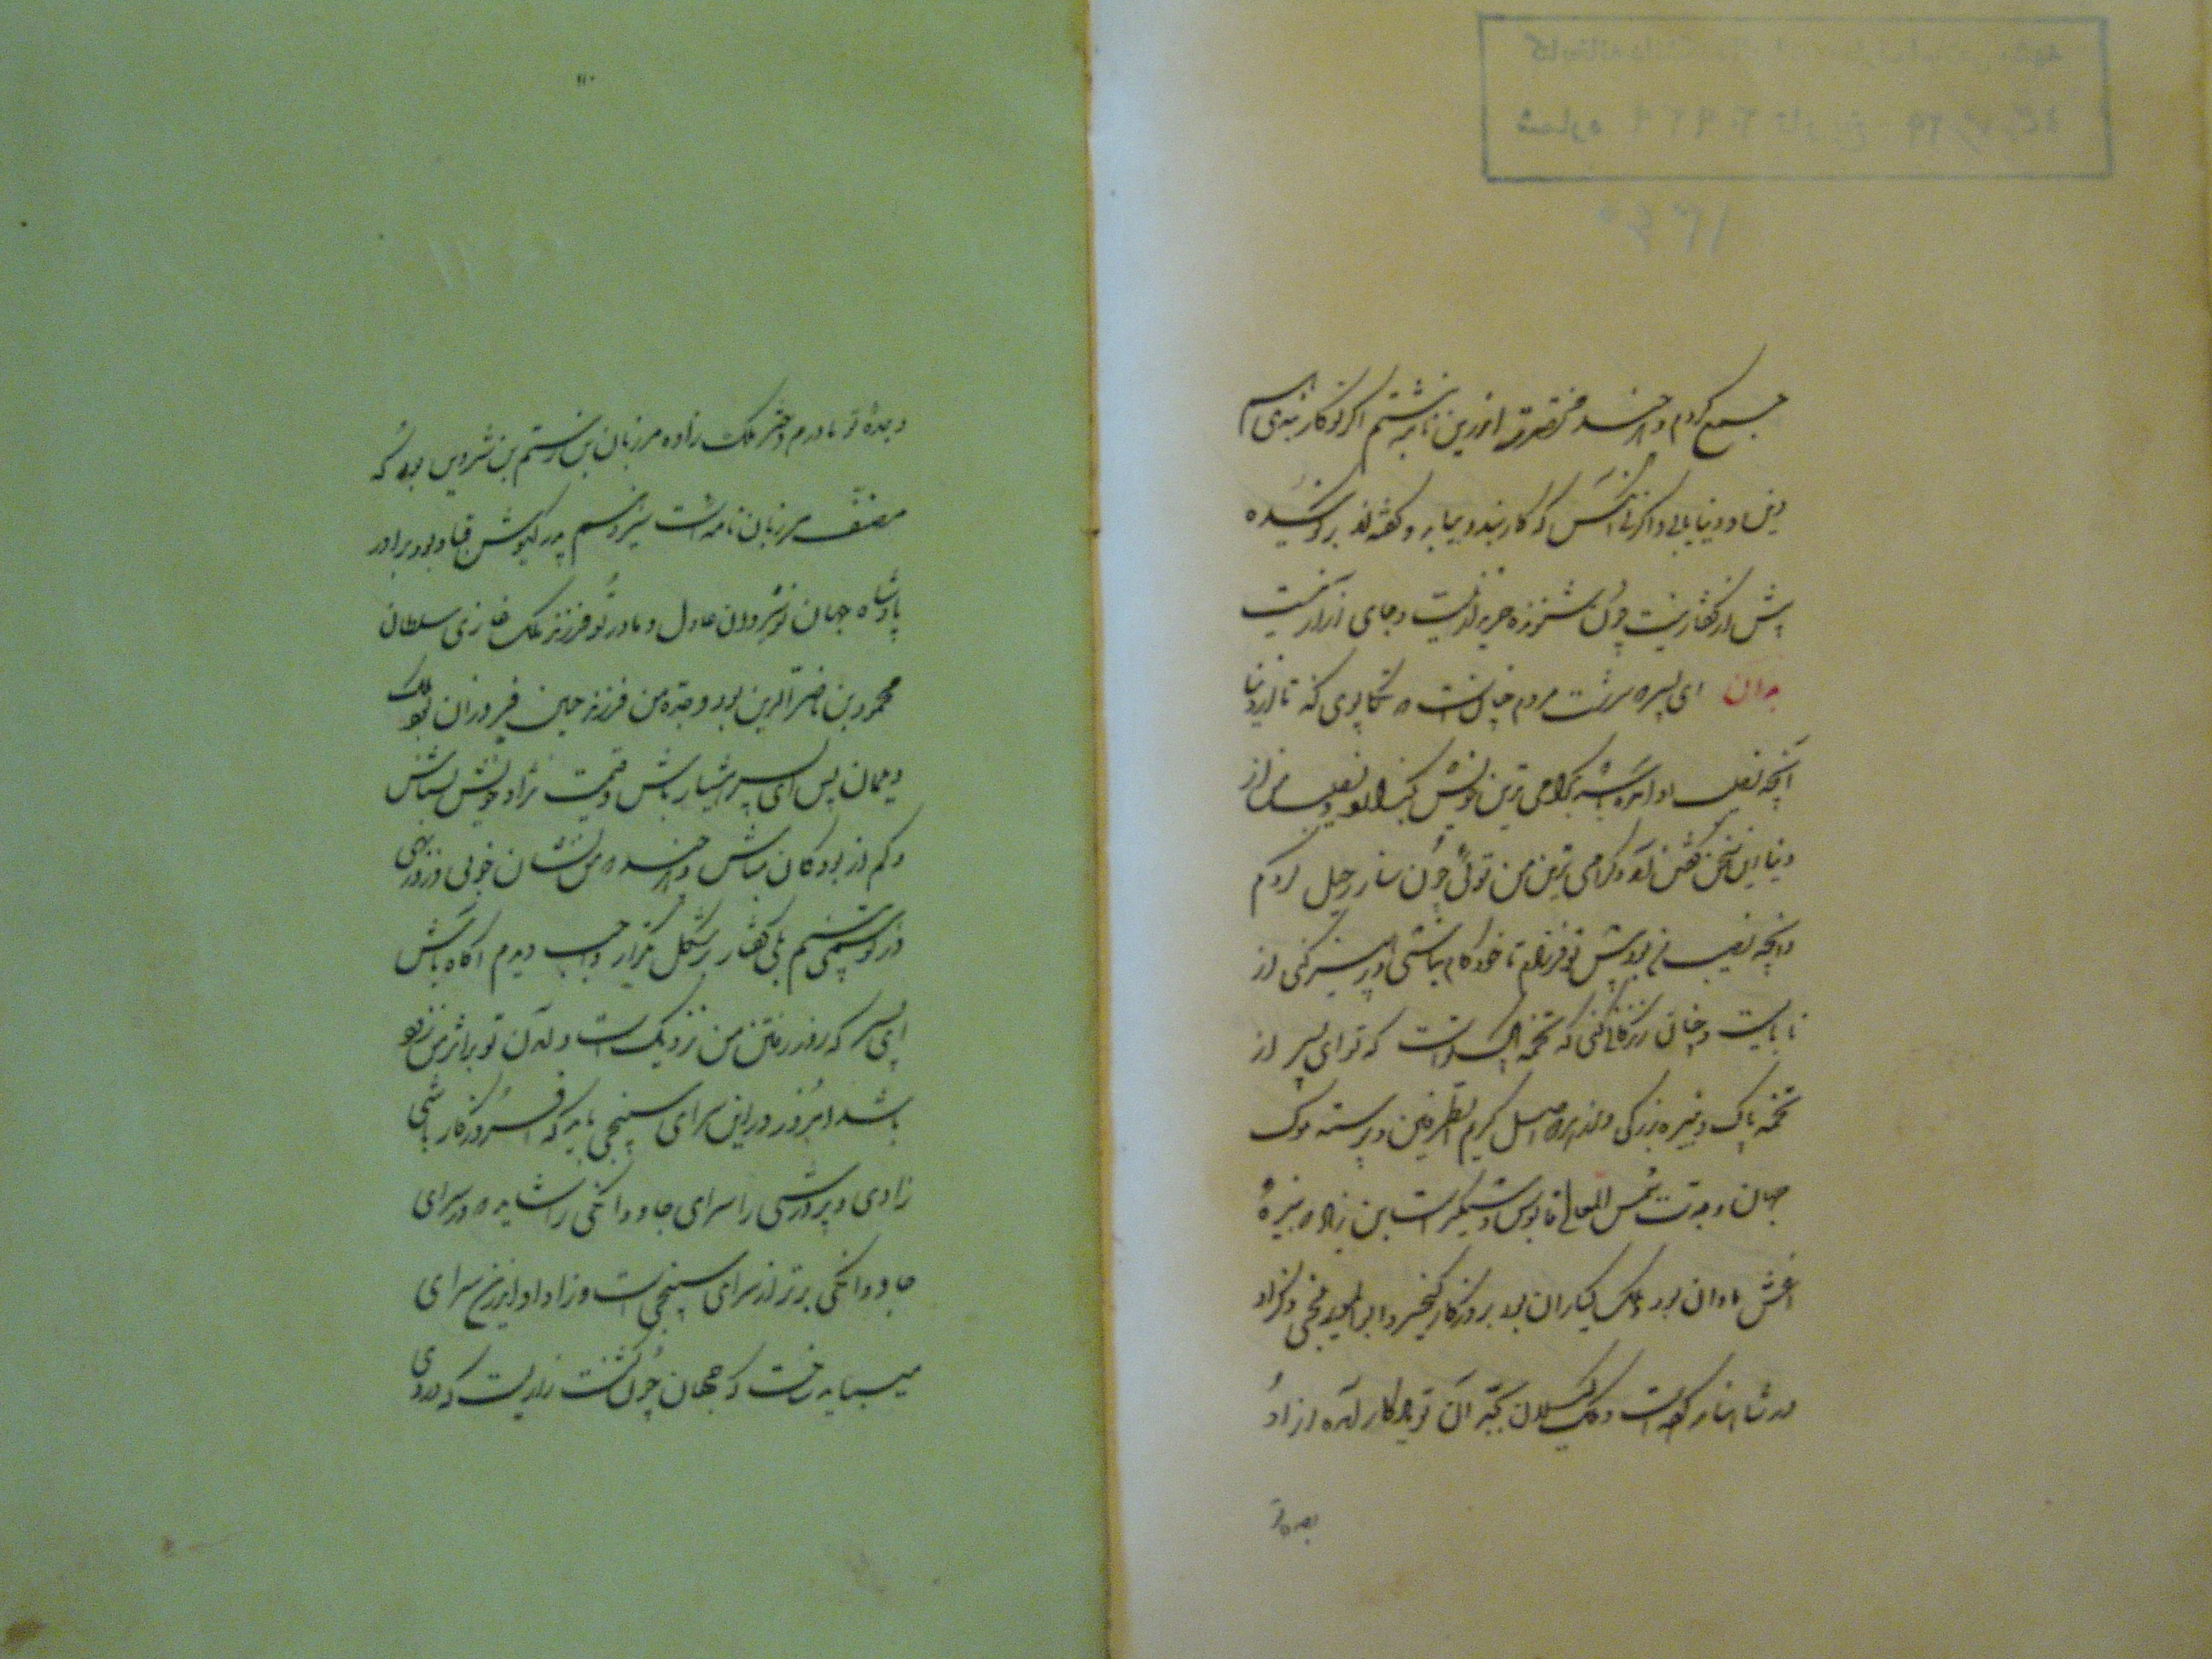 جمع کردم و هر چند مختصرتر اندرین نامه نبشتم اگر تو کار بندی هم
دین و دنیا یابی و اگر نه آنکس که کار بندد بیابد و گفته‌اند بر گوینده
بیش از گفتار نیست چون شنونده خریدار نیست و جای آزار نیست
بدان ای پسر که سرشت مردم چنان است که تکاپوی کند تا از دنیا
آنچه نصیب او آمده باشد بگرامی‌ترین خویش بگذارد و نصیب من از
دنیا این سخن گفتن آمد و گرامی‌ترین من توئی چون ساز رحیل کردم
و آنچه نصیب من بود پیش تو فرستادم تا خودکام نباشی و پرهیز کنی از
نابایست و چنان زندگانی کنی که تخمه پاک تراست که تو ای پسر از
تخمه پاک و نبیره بزرگی و از هر دو اصل کریم الطرفین و پیوسته ملوک
جهان و جدت شمس المعالی قابوس وشمگیر است بن زیاد و نبیرهٔ
اغش وهادان بود و ملک گیلان بود بروزگار کیخسرو و ابوالموید بلخی ذکر او
در شاهنامه کرده است و ملک گیلان بجد آن تو یادگار آمده از او
جدهٔ تو
وجدهٔ تو مادرم دختر ملک زاده مرزبان بن رستم بن شروین بود که
مصنف مرزبان نامه است سیزدهم پدر کیوش قباد بود برادر
پادشاه جهان نوشیروان عادل و مادر تو فرزند ملک غازی سلطان
محمود بن ناصرالدین بود و جده من فرزند حسن فیروزان بود ملک
دیلمان پس ای پسر هشیار باش و قیمت نژاد خویش بشناس
و کم از بودگان مباش و هر چند من نشان خوبی و روزبهی
در تو همی بینم بلی گفتار بر شکل تکرار واجب دیدم آگاه باش
ای پسر که روز رفتن من نزدیک است و آمدن تو بر اثر من زود
باشد امروز در این سرای سپنجی باید که بر سر کار باشی
زادی و پرورشی را سرای جاودانگی را شاید و سرای
جاودانگی برتر از سرای سپنجی است و زاد او ازین سرای
میباید جست که جهان چون کشت زاریست که دروی